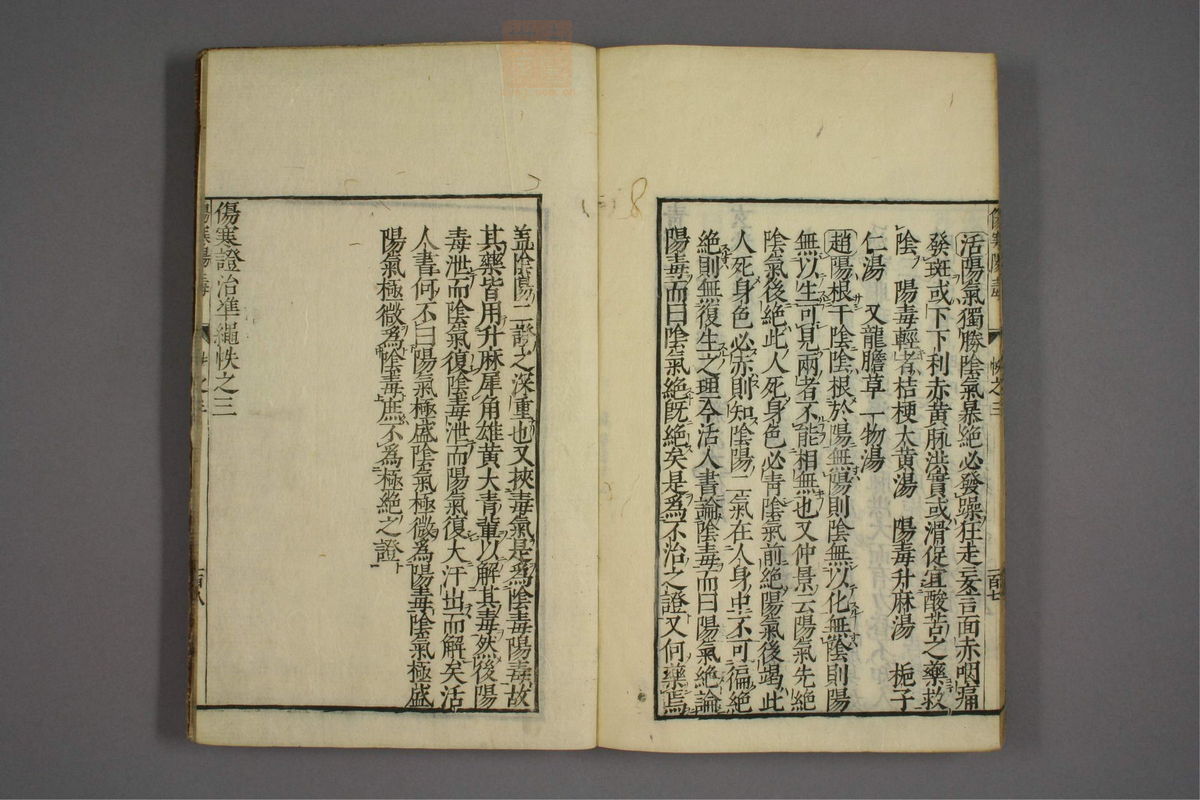 活陽氣獨勝陰氣暴絶必發躁狂走妄言面赤咽痛
發斑或下下利赤黄脉洪實或滑促宜酸苦之藥救
陰陽毒輕者桔梗大黄湯　陽毒升麻湯　梔子
仁湯　又龍膽草一物湯
趙陽根于陰陰根於陽無陽則陰無以化無陰則陽
無以生可見兩者不能相無也又仲景云陽氣先絶
陰氣後絶此人死身色必青陰氣前絶陽氣後竭此
人死身色必赤則知陰陽二氣在人身中不可偏絶
絶則無復生之理今活人書論陰毒而曰陽氣絶論
陽毒而曰陰氣絶既絶矣是爲不治之證又何藥焉
傷寒陽毒　帙之三　百七
盖陰陽二證之深重也又挾毒氣是爲陰毒陽毒故
其藥皆用升麻犀角雄黄大青輩以解其毒然後陽
毒泄而陰氣復陰毒泄而陽氣復大汗出而解矣活
人書何不曰陽氣極盛陰氣極微爲陽毒陰氣極盛
陽氣極微爲陰毒庶不爲極絶之證
傷寒證治準繩帙之三
傷寒陽毒　帙之三　百八